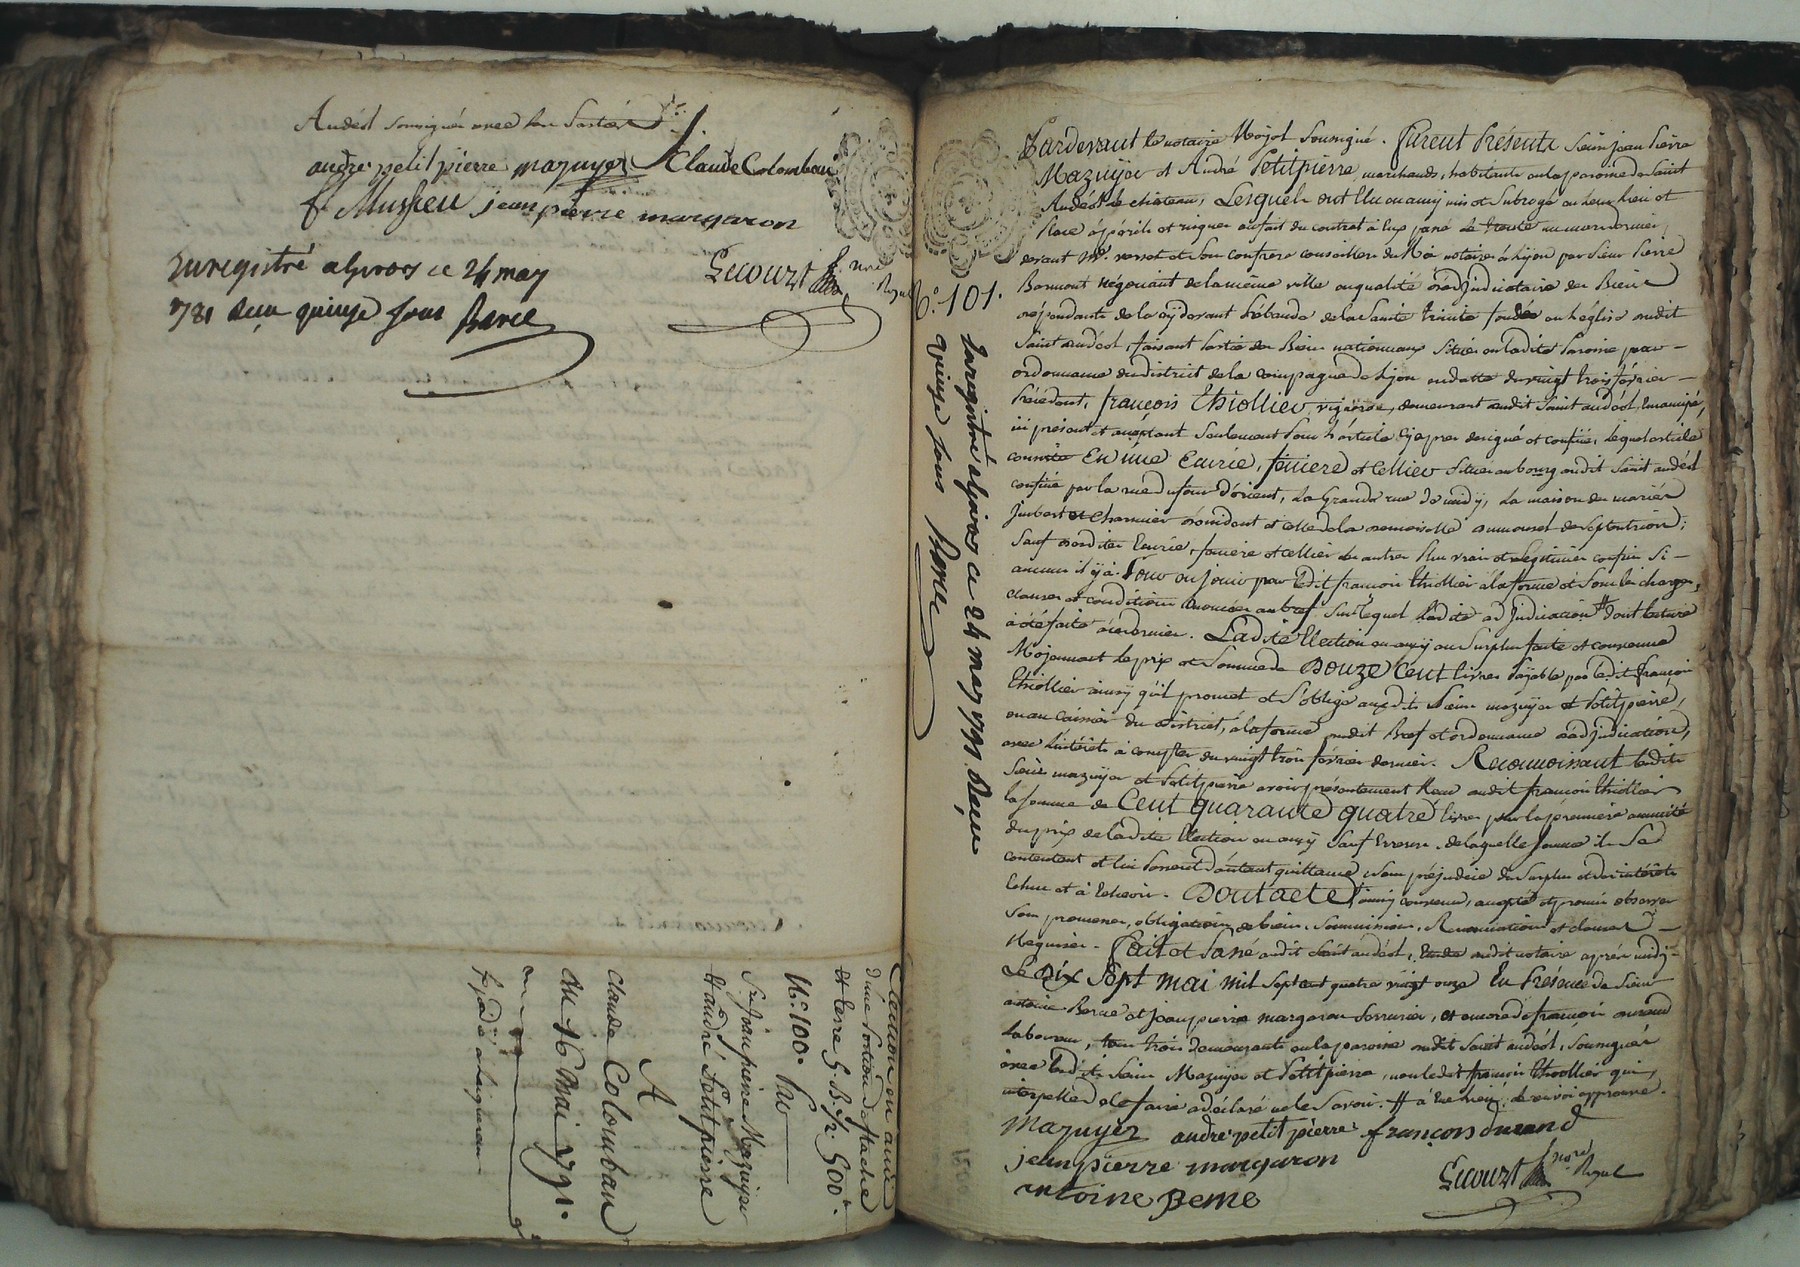 Andéol soussignés avec les parties
andré petit pierre mazuyer Claude Colomban
f. Mussieu jean pierre margaron
Lecourt nore Royal
Enregistré a givors ce 24 may
1791 Reçu quinze sous Berce
Election en amie
d'une portion de
et terre
N.° 100. Pro
Srs. Jean pierre Mazuyer
et andré Petitpierre
A
Claude Colomban
du 16 Mai 1791.
N.° 101.
Enregistré a givors ce 24 may 1791 Reçu
quinze sous Berce
Pardevant le notaire Royal soussigné. furent Présents sieurs jean Pierre
Mazuyer et André Petitpierre, marchands, habitants en la paroisse de Saint
Andéol le chateau, Lesquels ont élu en amy mis et subrogé en leur lieu et
place à périls et risques au fait du contrat à eux passé le trente mars dernier,
devant Me. et son confrere conseillers du Roi notaires à Lyon par sieur Pierre
Bermont négociant de la même ville en qualité d'adjudicataire des Biens
dépendants de la cy devant Prébande de la Sainte trinité fondée en l'église audit
Saint andéol, faisant partie des Biens nationnaux situés en ladite Paroisse par
ordonnance du district de la campagne de Lyon en datte du vingt trois février
Précédent, françois Thiollier, vigneron, demeurant audit Saint andéol, Emancipé,
ici présent et acceptant seulement pour l'article cy après désigné et confiné, lequel article
consiste En une Ecurie, feniere et Cellier situés au bourg audit Saint andéol
confiné par la rue du four d'orient, la Grande rue de midy, la maison des mariés
Jmbert et Charmier d'occident et celle de la demoiselle de septentrion;
sauf desdites Ecurie, feniere et cellier les autres plus vrais et légitimes confins si
aucuns il y à. Pour en jouir par ledit françois thiollier à la forme et sous les charges,
clauses et conditions énoncées au bref sur lequel ladite adjudication # dont lecture
à été faite à ce dernier. Ladite Election en amy au surplus faite et convenue
Moÿennant le prix et somme de Douze Cent livres payable par ledit françois
thiollier ainsy qu'il promet et s'oblige auxdits sieurs mazuyer et Petitpierre,
ou au caissier du district, à la forme audit Bref et ordonnance d'adjudication,
avec l'intérêts à compter du vingt trois février dernier. Reconnoissant lesdits
sieurs mazuyer et Petitpierre avoir présentement Reçu audit françois thiollier
la somme de Cent quarante quatre livres pour la première annuité
du prix de ladite Election en amy sauf Erreur. de laquelle somme ils sont
contents et lui passent d'autant quittance, sans préjudice du surplus et des intérêts
Echus et à Echeoir. Dont acte ainsy convenu, accepté et promis observer
sous promesses, obligations de biens, soumissions, Renonciations et clauses
Requises. Fait et Passé audit Saint andéol, Etude audit notaire après midy
Le Dix Sept mai mil sept cent quatre vingt onze En Présence de sieur
antoine Berne et jean pierre margaron serrurier, et encore de françois durand
Laboureur, tous trois demeurants en la paroisse audit Saint andéol, soussignés
avec lesdits sieurs Mazuyer et Petitpierre, non ledit françois thiollier qui,
interpellé de le faire a déclaré ne le savoir. # à Eue lieu; de renvoi approuvé.
Mazuyer andré petit pierre françois durand
jean pierre margaron
antoine Berne Lecourt nore Royal